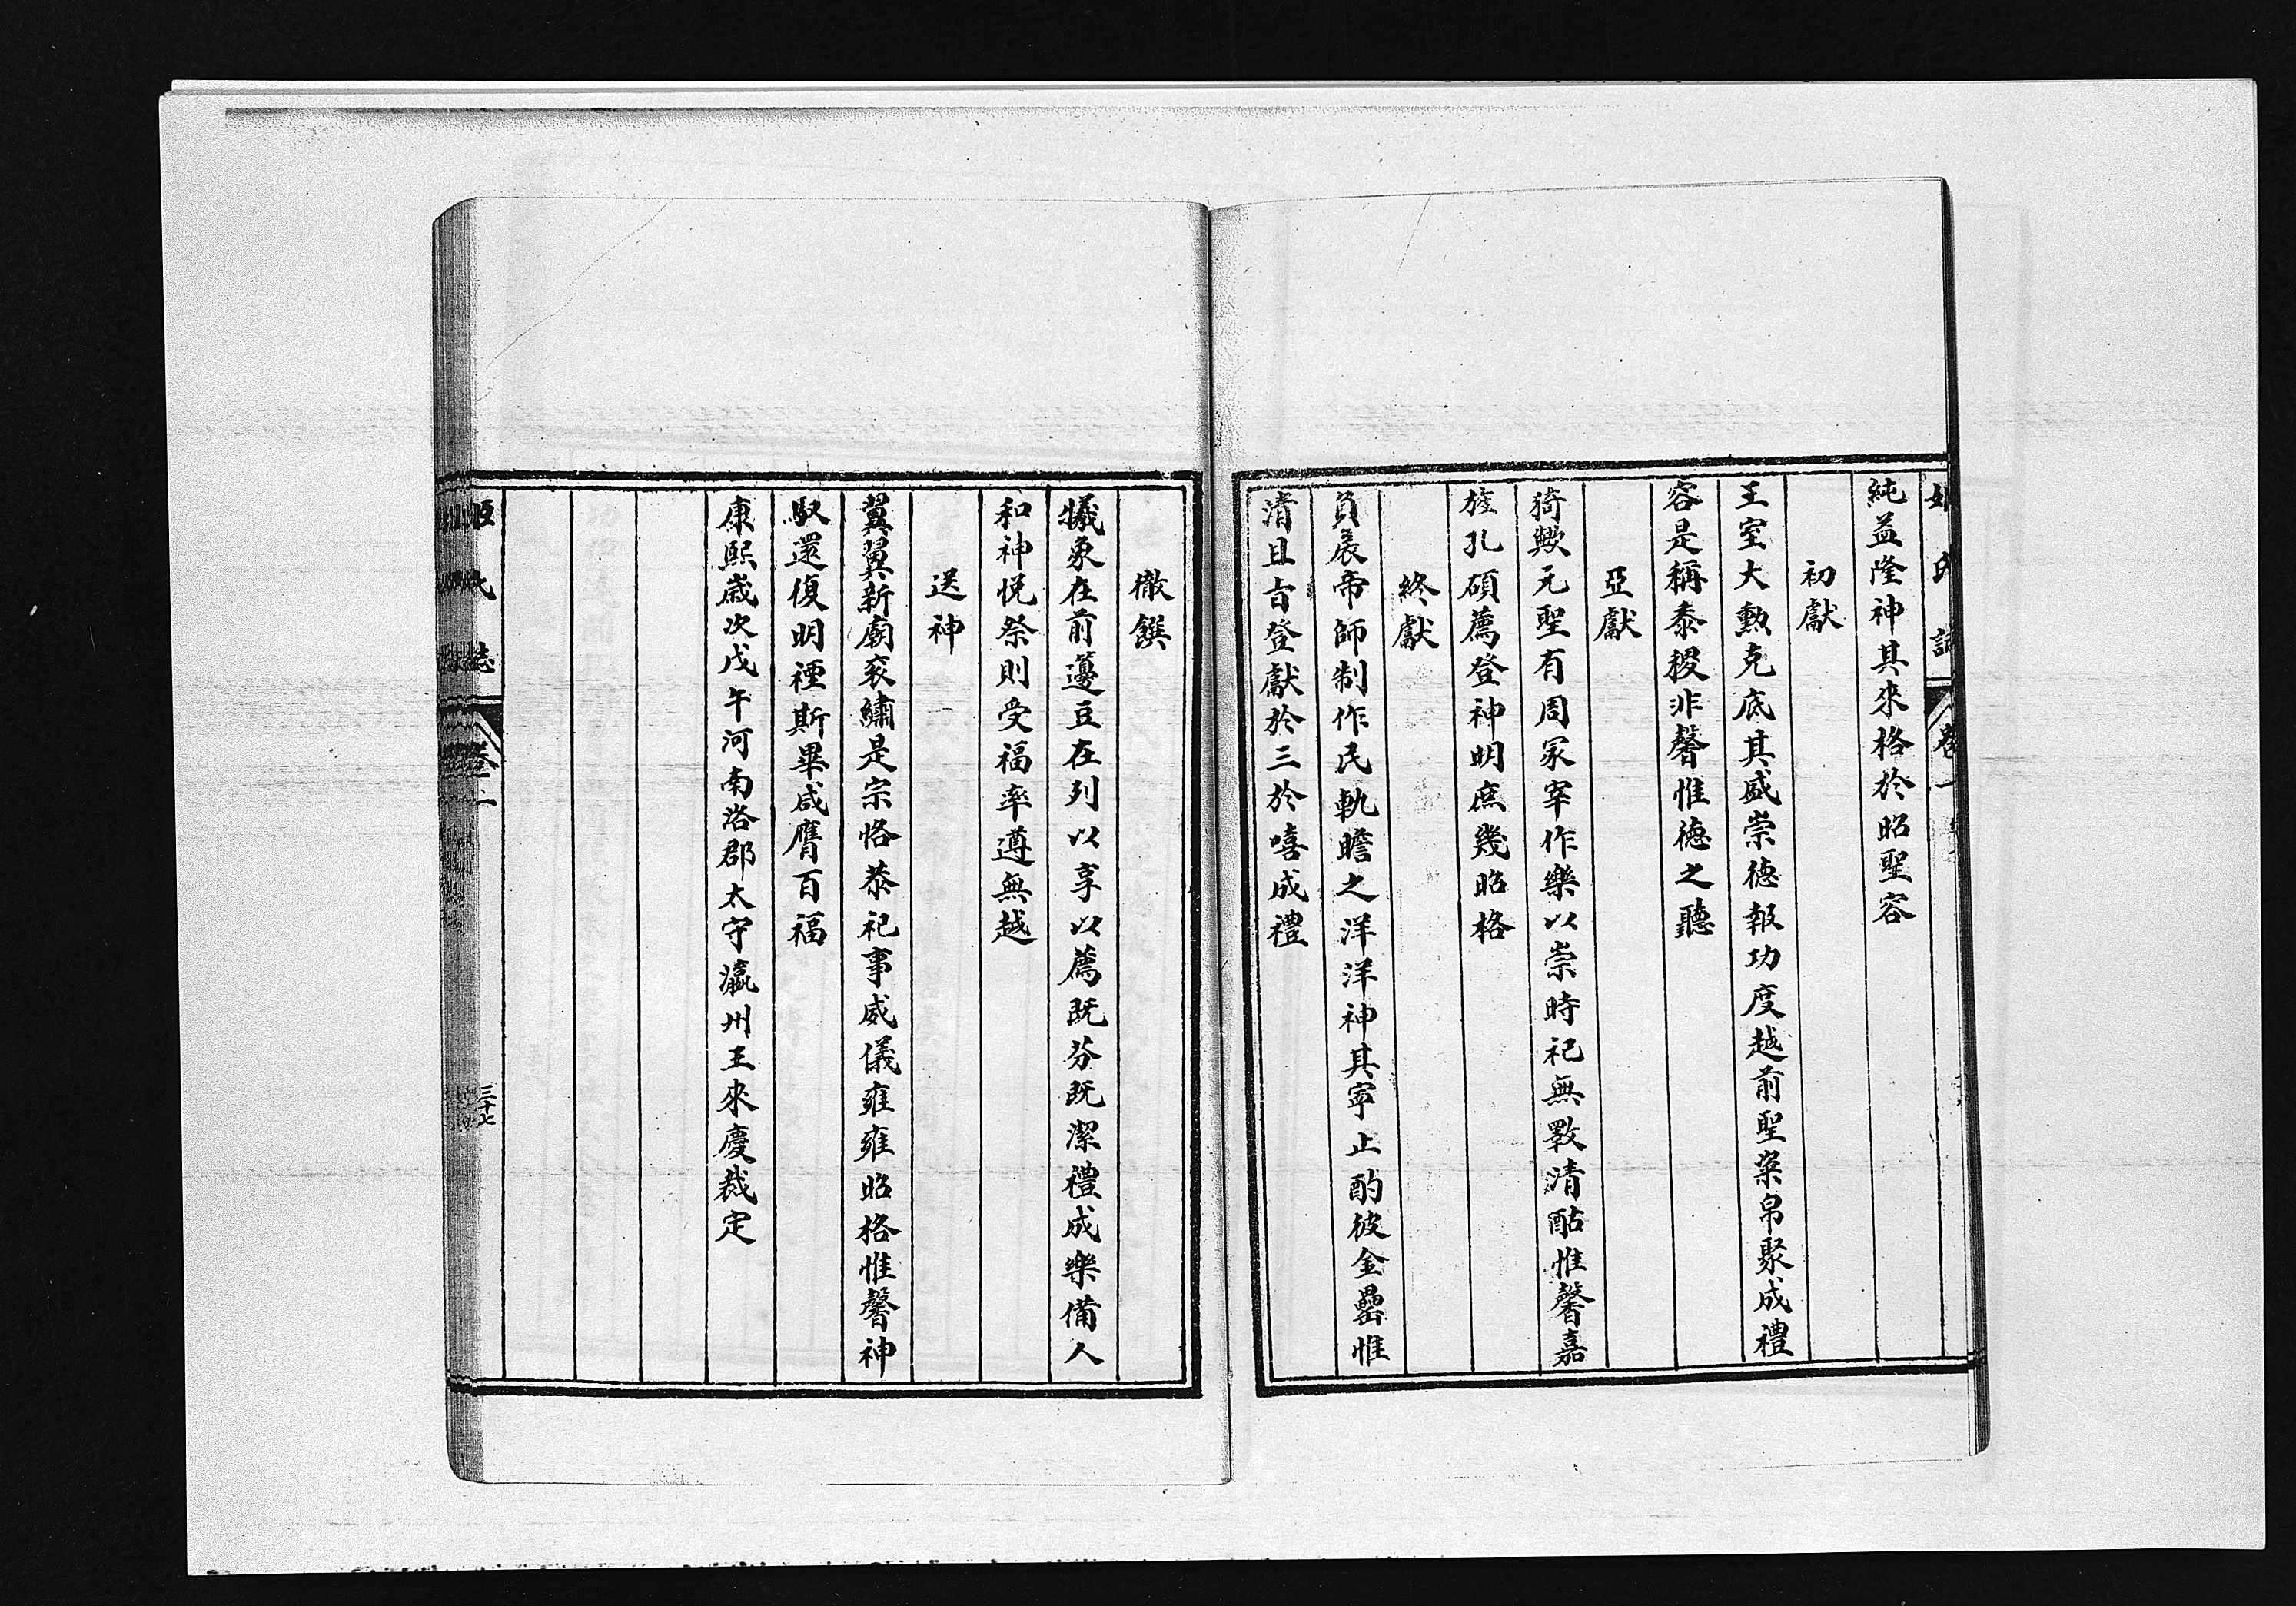 姬氏誌 卷一
純益隆神其來格於昭聖容
初獻
王室大勲克底其盛崇德報功度越前聖粢帛聚成禮
容是稱黍稷非馨惟德之聽
亞獻
猗歟元聖有周冢宰作樂以崇時祀無斁清酤惟馨嘉
旌孔碩薦登神明庶幾昭格
終獻
負扆帝師制作民軌瞻之洋洋神其寧止酌彼金罍惟
清且旨登獻於三於嘻成禮
徹饌
犧象在前籩豆在列以享以薦既芬既潔禮成樂備人
和神悅祭則受福率遵無越
送神
翼翼新廟衮繡是宗恪恭祀事威儀雍雍昭格惟馨神
馭還復明禋斯畢咸膺百福
康熙歲次戊午河南洛郡太守瀛州王來慶裁定
姬氏誌 卷一 三十七